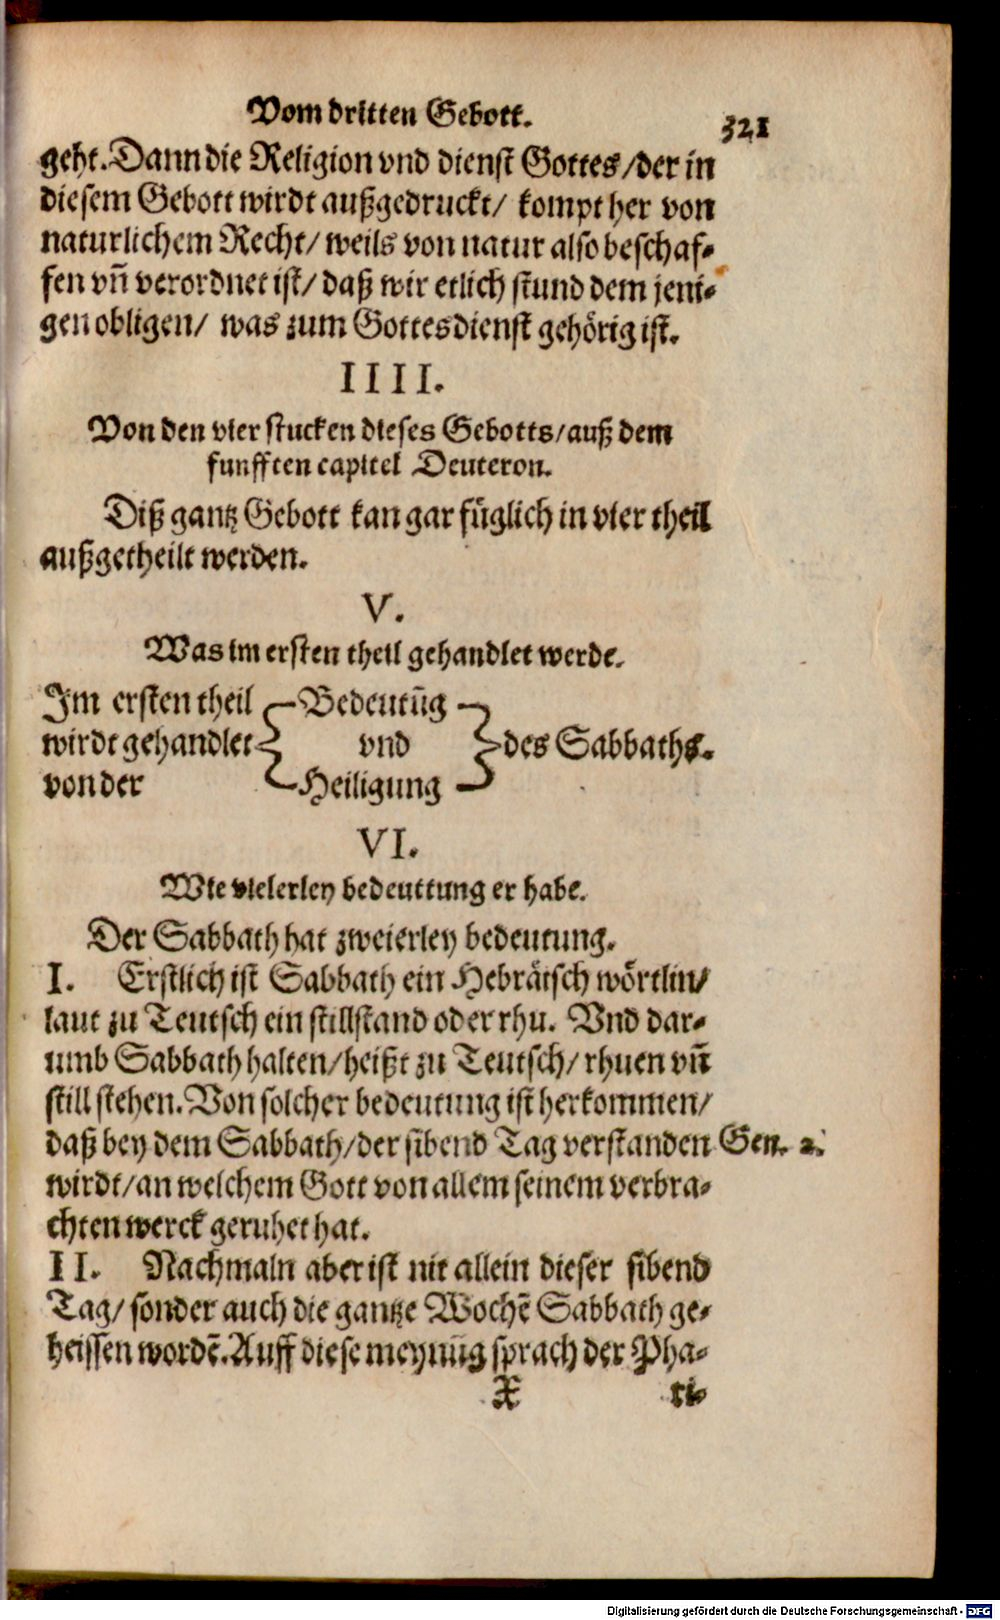 Vom dritten Gebott.
321
geht. Dann die Religion vnd dienst Gottes/der in
diesem Gebott wirdt außgedruckt/ kompt her von
naturlichem Recht/ weils von natur also beschaf-
fen vñ verordnet ist/ daß wir etlich stund dem jeni-
gen obligen/ was zum Gottesdienst gehörig ist.
IIII.
Von den vier stucken dieses Gebotts/auß dem
funfften capitel Deuteron.
Diß gantz Gebott kan gar füglich in vier theil
außgetheilt werden.
V.
Was im ersten theil gehandlet werde.
Im ersten theil Bedeutũg
wirdt gehandlet vnd des Sabbaths.
von der Heiligung
VI.
Wie vielerley bedeuttung er habe.
Der Sabbath hat zweierley bedeutung.
I. Erstlich ist Sabbath ein Hebräisch wörtlin/
laut zu Teutsch ein stillstand oder rhu. Vnd dar-
umb Sabbath halten/heißt zu Teutsch/ rhuen vñ
still stehen. Von solcher bedeutung ist herkommen/
daß bey dem Sabbath/der sibend Tag verstanden Gen. 2.
wirdt/an welchem Gott von allem seinem verbra-
chten werck geruhet hat.
II. Nachmaln aber ist nit allein dieser sibend
Tag/ sonder auch die gantze Wochẽ Sabbath ge-
heissen wordẽ. Auff diese meynũg sprach der Pha-
X ri-
Digitalisierung gefördert durch die Deutsche Forschungsgemeinschaft - DFG